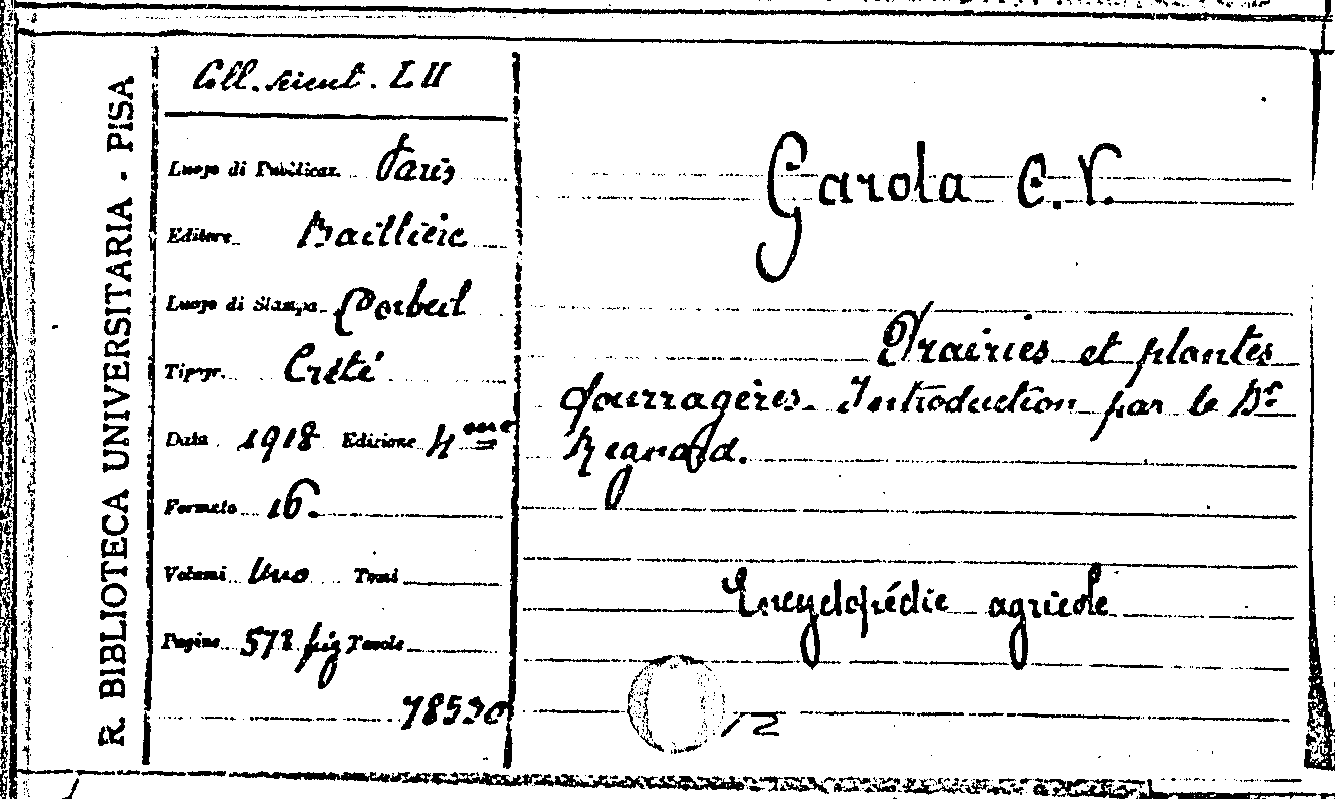 R. BIBLIOTECA UNIVERSITARIA - PISA
Coll. scient. LII
Luogo di Pubblicaz. Paris
Editore Baillière
Luogo di Stampa Corbeil
Tipogr. Crété
Data 1918 Edizione 4ème
Formato 16.
Volumi Uno Tomi
Pagine 578 fig Tavole
78530
Garola C. V.
Prairies et plantes
fourragères. Introduction par le Dr
Regnard.
Encyclopédie agricole